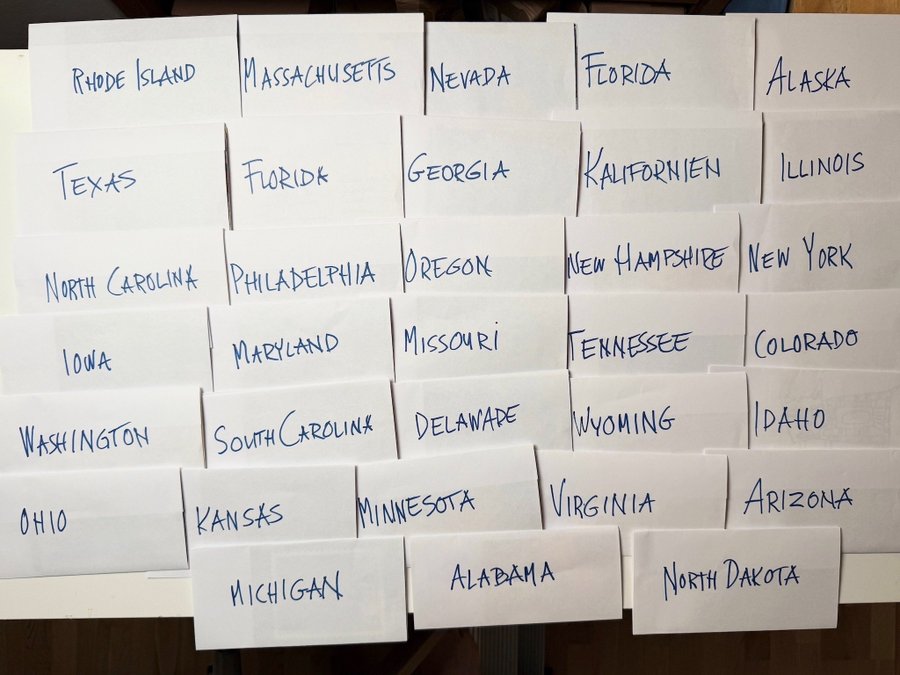 RHODE ISLAND
MASSACHUSETTS
NEVADA
FLORIDA
ALASKA
TEXAS
FLORIDA
GEORGIA
KALIFORNIEN
ILLINOIS
NORTH CAROLINA
PHILADELPHIA
OREGON
NEW HAMPSHIRE
NEW YORK
IOWA
MARYLAND
MISSOURi
TENNESSEE
COLORADO
WASHINGTON
SOUTH CAROLINA
DELAWARE
WYOMING
IDAHO
OHIO
KANSAS
MINNESOTA
VIRGINIA
ARIZONA
MICHIGAN
ALABAMA
NORTH DAKOTA